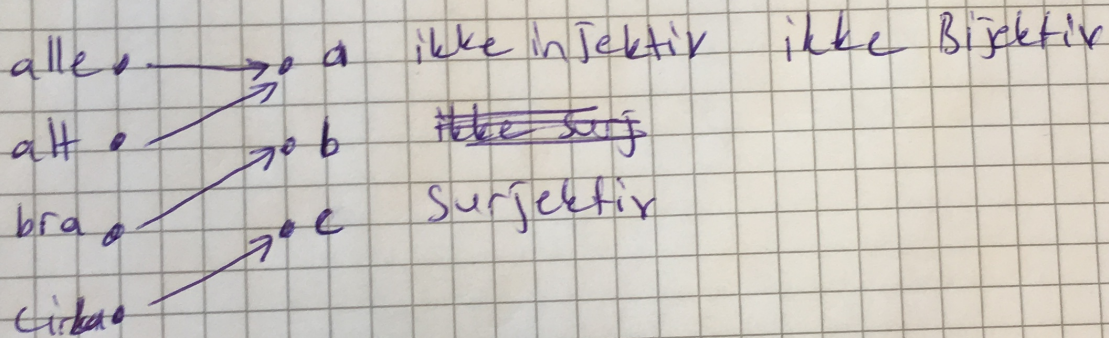 alle a ikke injektiv ikke Bijektiv
alt b ikke surj
bra c surjektiv
cirka